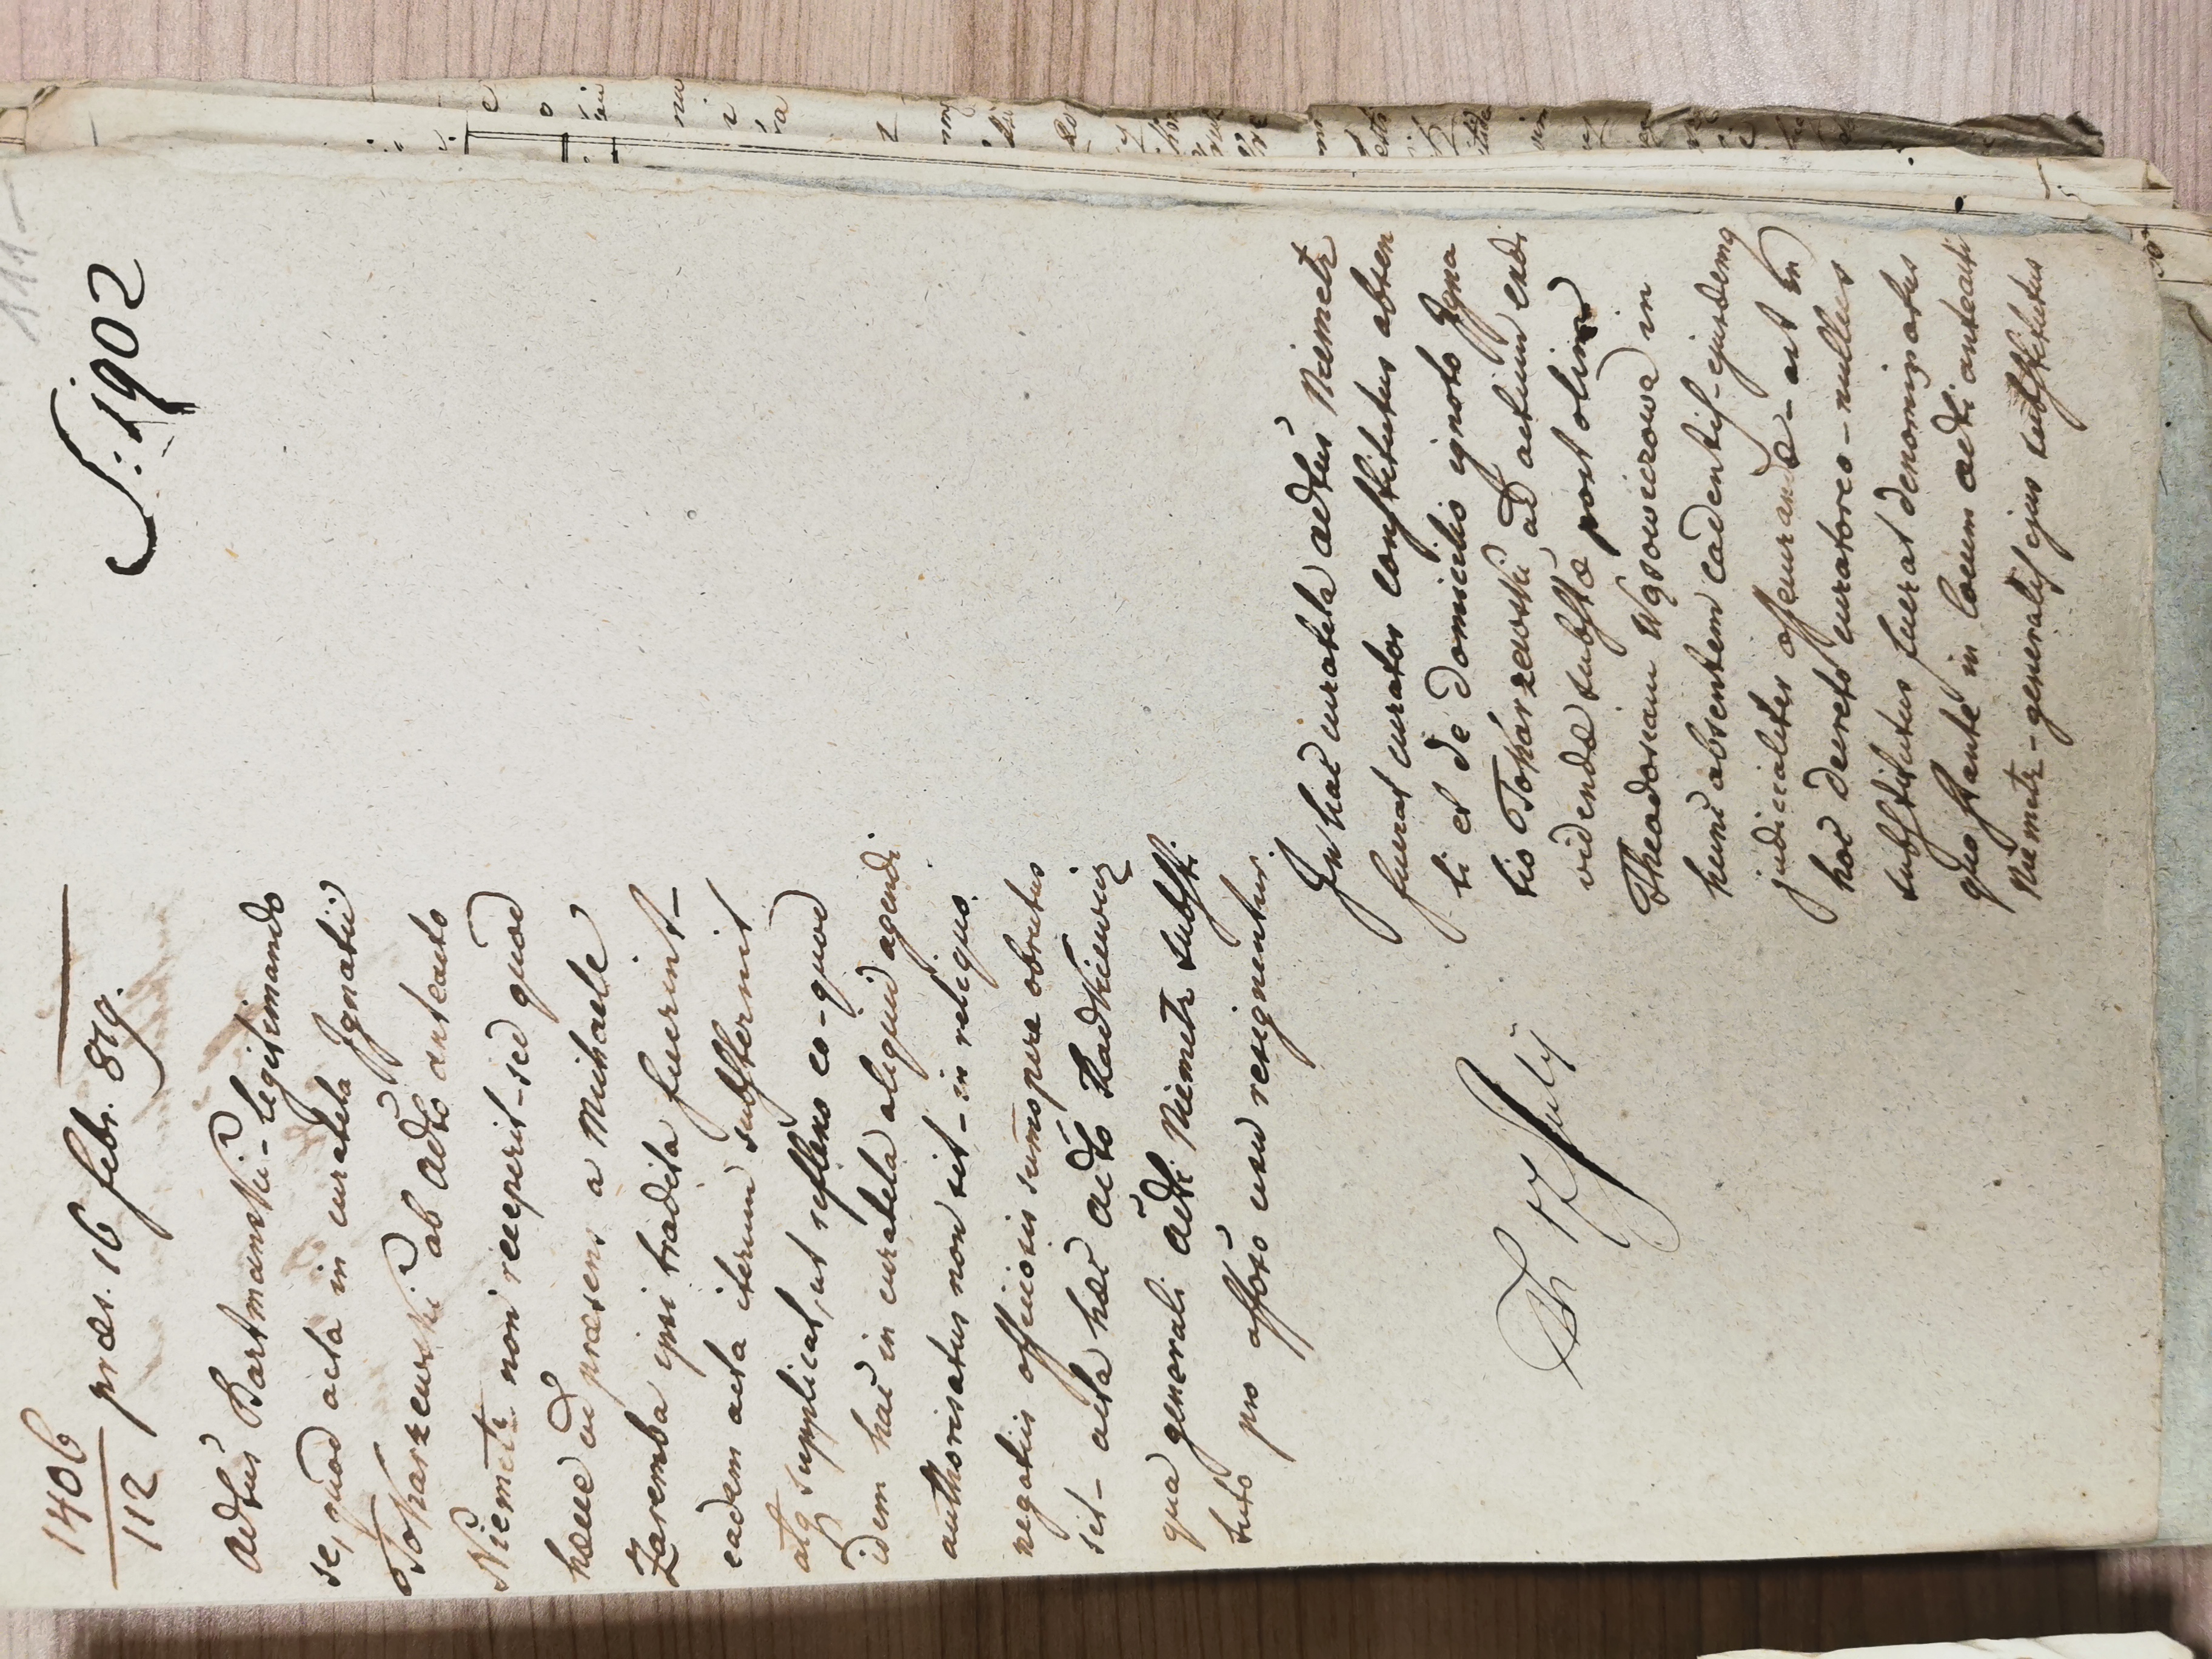 111
S: 1902
1406
112
præs. 16 febr. 819.
Adtus Bartmanski - legitimando
se, quod acta in curatela Ignatii
Tokarzewski ab Adto anteacto
Niemetz non receperit - sed quod
hæcce ad præsens a Michaele
Zaremba ipsi tradita fuerint -
eadem acta iterum substernit
atq supplicat, ut reflexo eo - quod
idem hac in curatela aliquid agendi
authorisatus non sit - in reliquo
negotiis officiosis summopere obrutus
sit - acta hæc Adto Radkiewicz
qua generali Adti Niemetz substi
tuto pro affoso usu resignentur.
In hac curatela Adtus Niemetz
fuerat curator constitutus absen
ti et de domicilio ignoto Igna
tio Tokarzewski ad actum exdi
videndæ substæ post olim
Theodosiam Wąsowiczowa in
hunc absentem cadentis - ejusdemq
judicialiter assecurandæ - ast in
hoc decreto curatores - nullus
substitutus fuerat denominatus
quo stante in locum adti anteacti
Niemetz - generalis ejus substitutus
12 July